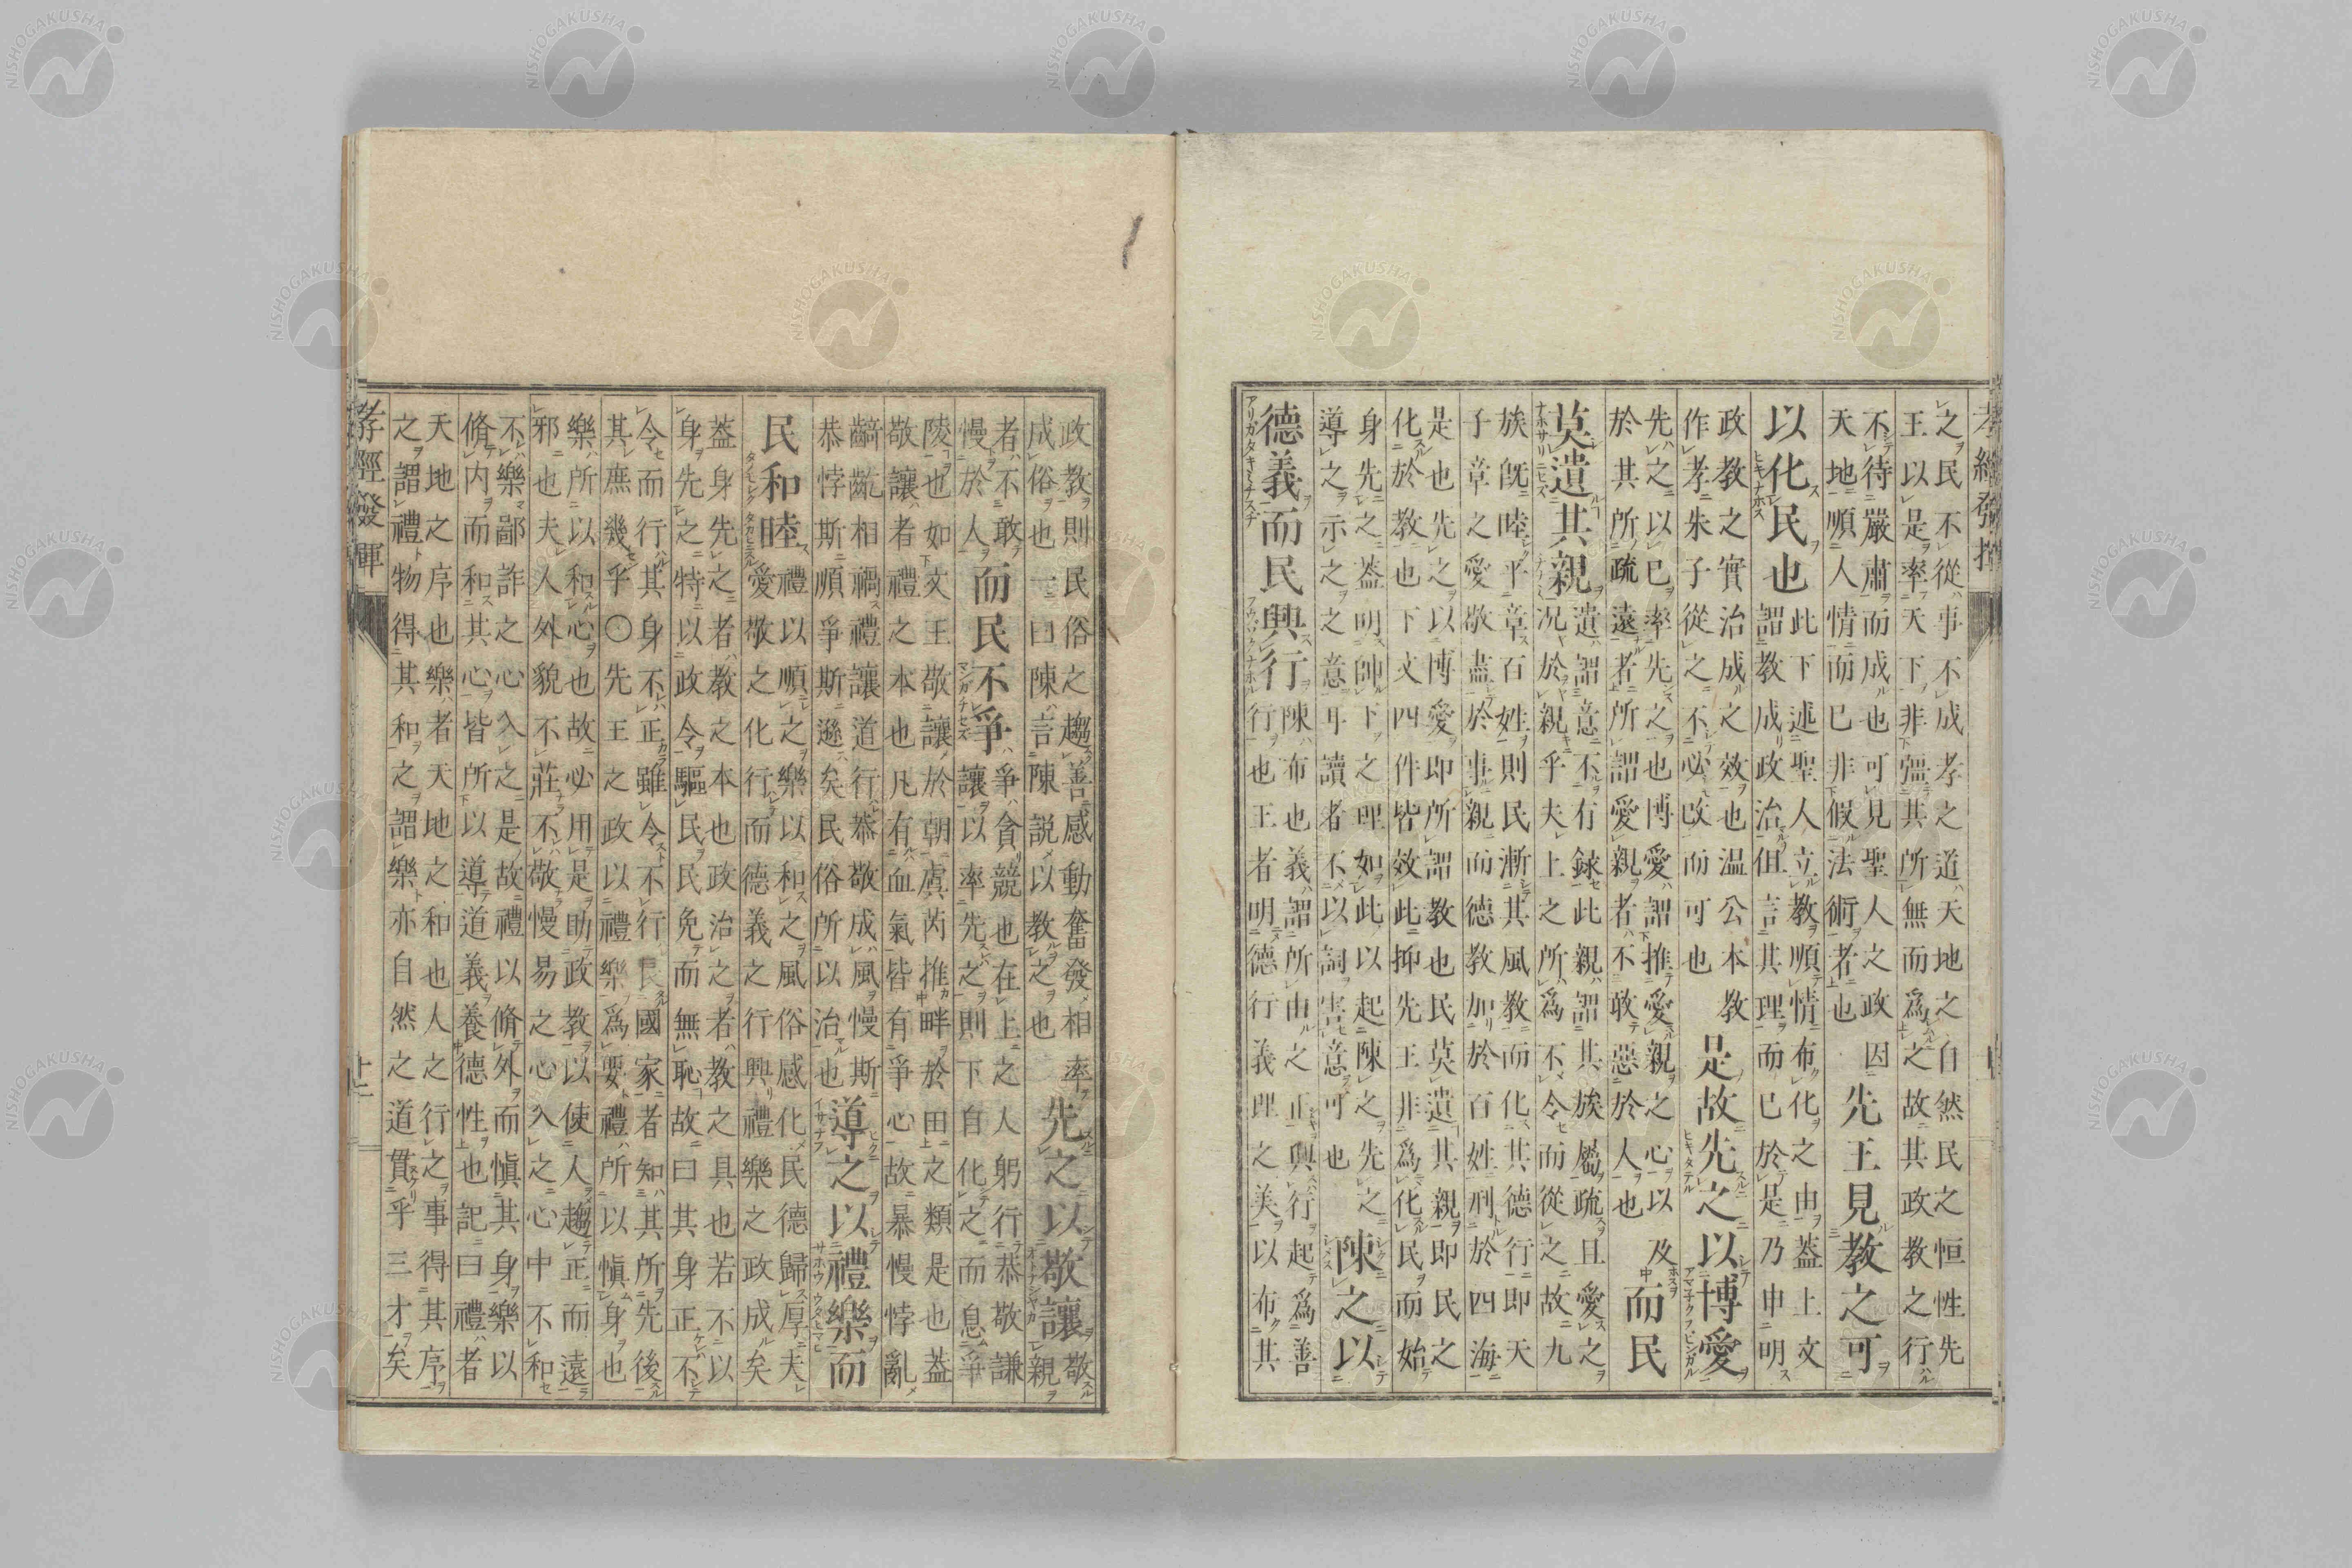 之民不從事不成孝之道天地之自然民之恒性先
王以是率天下非彊其所無而爲之故其政教之行
不待嚴肅而成也可見聖人之政因
天地順人情而已非假法術者也
先王見教之可
以化民也
此下述聖人立教順情布化之由蓋上文
謂教成政治但言其理而已於是乃申明
政教之實治成之效也温公本教
作孝朱子從之不必改而可也
是故先之以博愛
先之以已率先之也博愛謂推愛親之心以及
於其所疏遠者所謂愛親者不敢惡於人也
而民
莫遺其親
遺謂意不有録此親謂其族屬疏且愛之
况於親乎夫上之所爲不令而從之故九
族既睦平章百姓則民漸其風教而化其德行即天
子章之愛敬盡於事親而德教加於百姓刑於四海
是也先之以博愛即所謂教也民莫遺其親即民之
化於教也下文四件皆效此抑先王非爲化民而始
身先之蓋明帥下之理如此以起陳之先之
導之示之之意耳讀者不以詞害意可也
陳之以
德義而民興行
陳布也義謂所由之正興行起爲善
行也王者明德行義理之美以布其
政教則民俗之趨善感動奮發相率
成俗也一曰陳言陳説以教之也
先之以敬讓
敬親
者不敢
慢於人
而民不爭
爭貪競也在上之人躬行恭敬謙
讓以率先之則下自化之而息爭
陵也如文王敬讓於朝虞芮推畔於田之類是也蓋
敬讓者禮之本也凡有血氣皆有爭心故暴慢悖亂
齮齕相禍禮讓道行恭敬成風慢斯
恭悖斯順爭斯遜矣民俗所以治也
導之以禮樂而
民和睦
禮以順之樂以和之風俗感化民德歸厚夫
愛敬之化行而德義之行興禮樂之政成矣
蓋身先之者教之本也政治之者教之具也若不以
身先之特以政令驅民民免而無恥故曰其身正不
令而行其身不正雖令不行國家者知其所先後
其庶幾乎〇先王之政以禮樂爲要禮所以愼身也
樂所以和心也故必用是助政教以使人趨正而遠
邪也夫人外貌不莊不敬慢易之心入之心中不和
不樂鄙詐之心入之是故禮以脩外而愼其身樂以
脩内而和其心皆所以導道義養德性也記曰禮者
天地之序也樂者天地之和也人之行之事得其序
之謂禮物得其和之謂樂亦自然之道貫乎三才矣
孝經發揮
十二